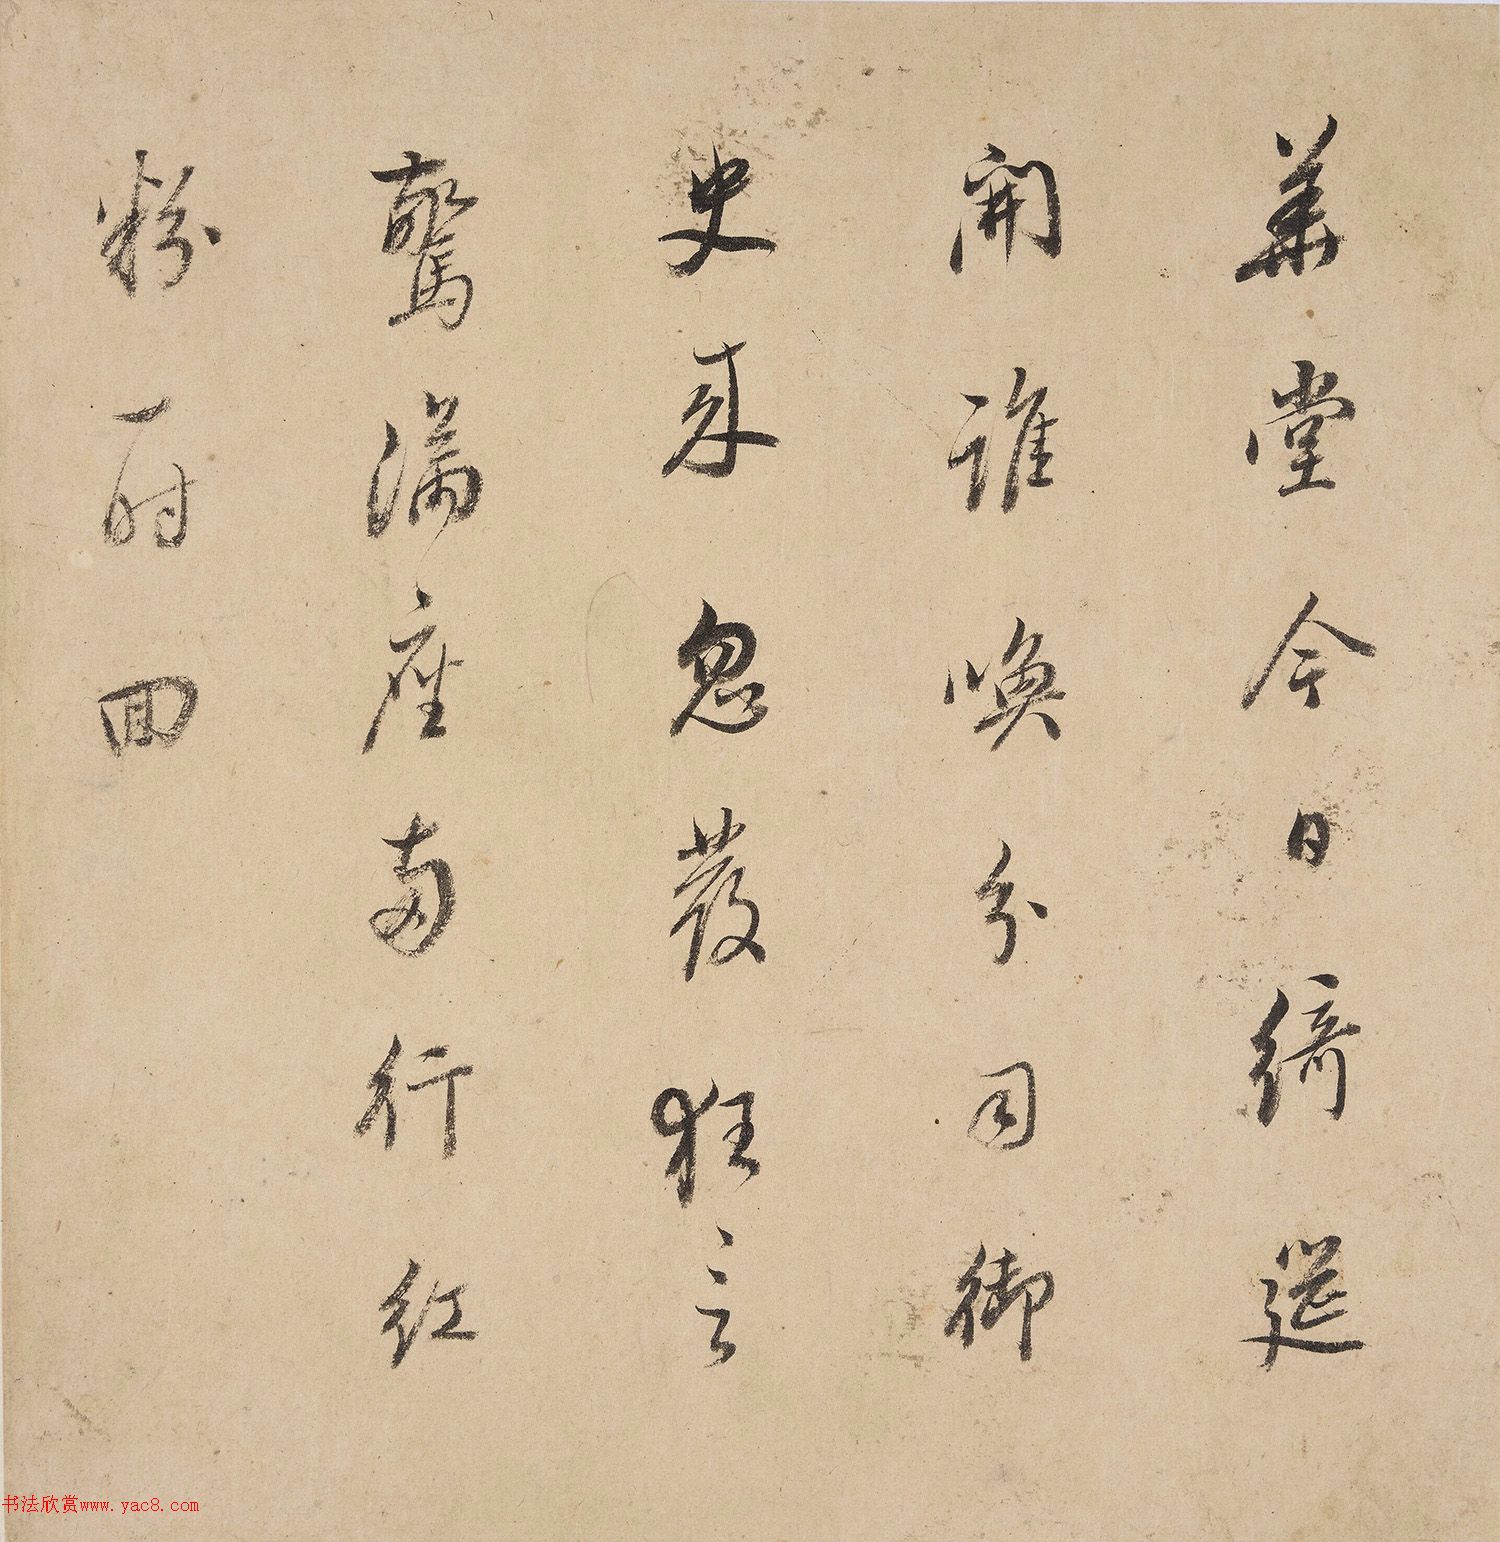 華堂今日綺筵
開誰喚分司御
史来忽發狂言
驚滿座兩行紅
粉一時回
书法欣赏www.yac8.com